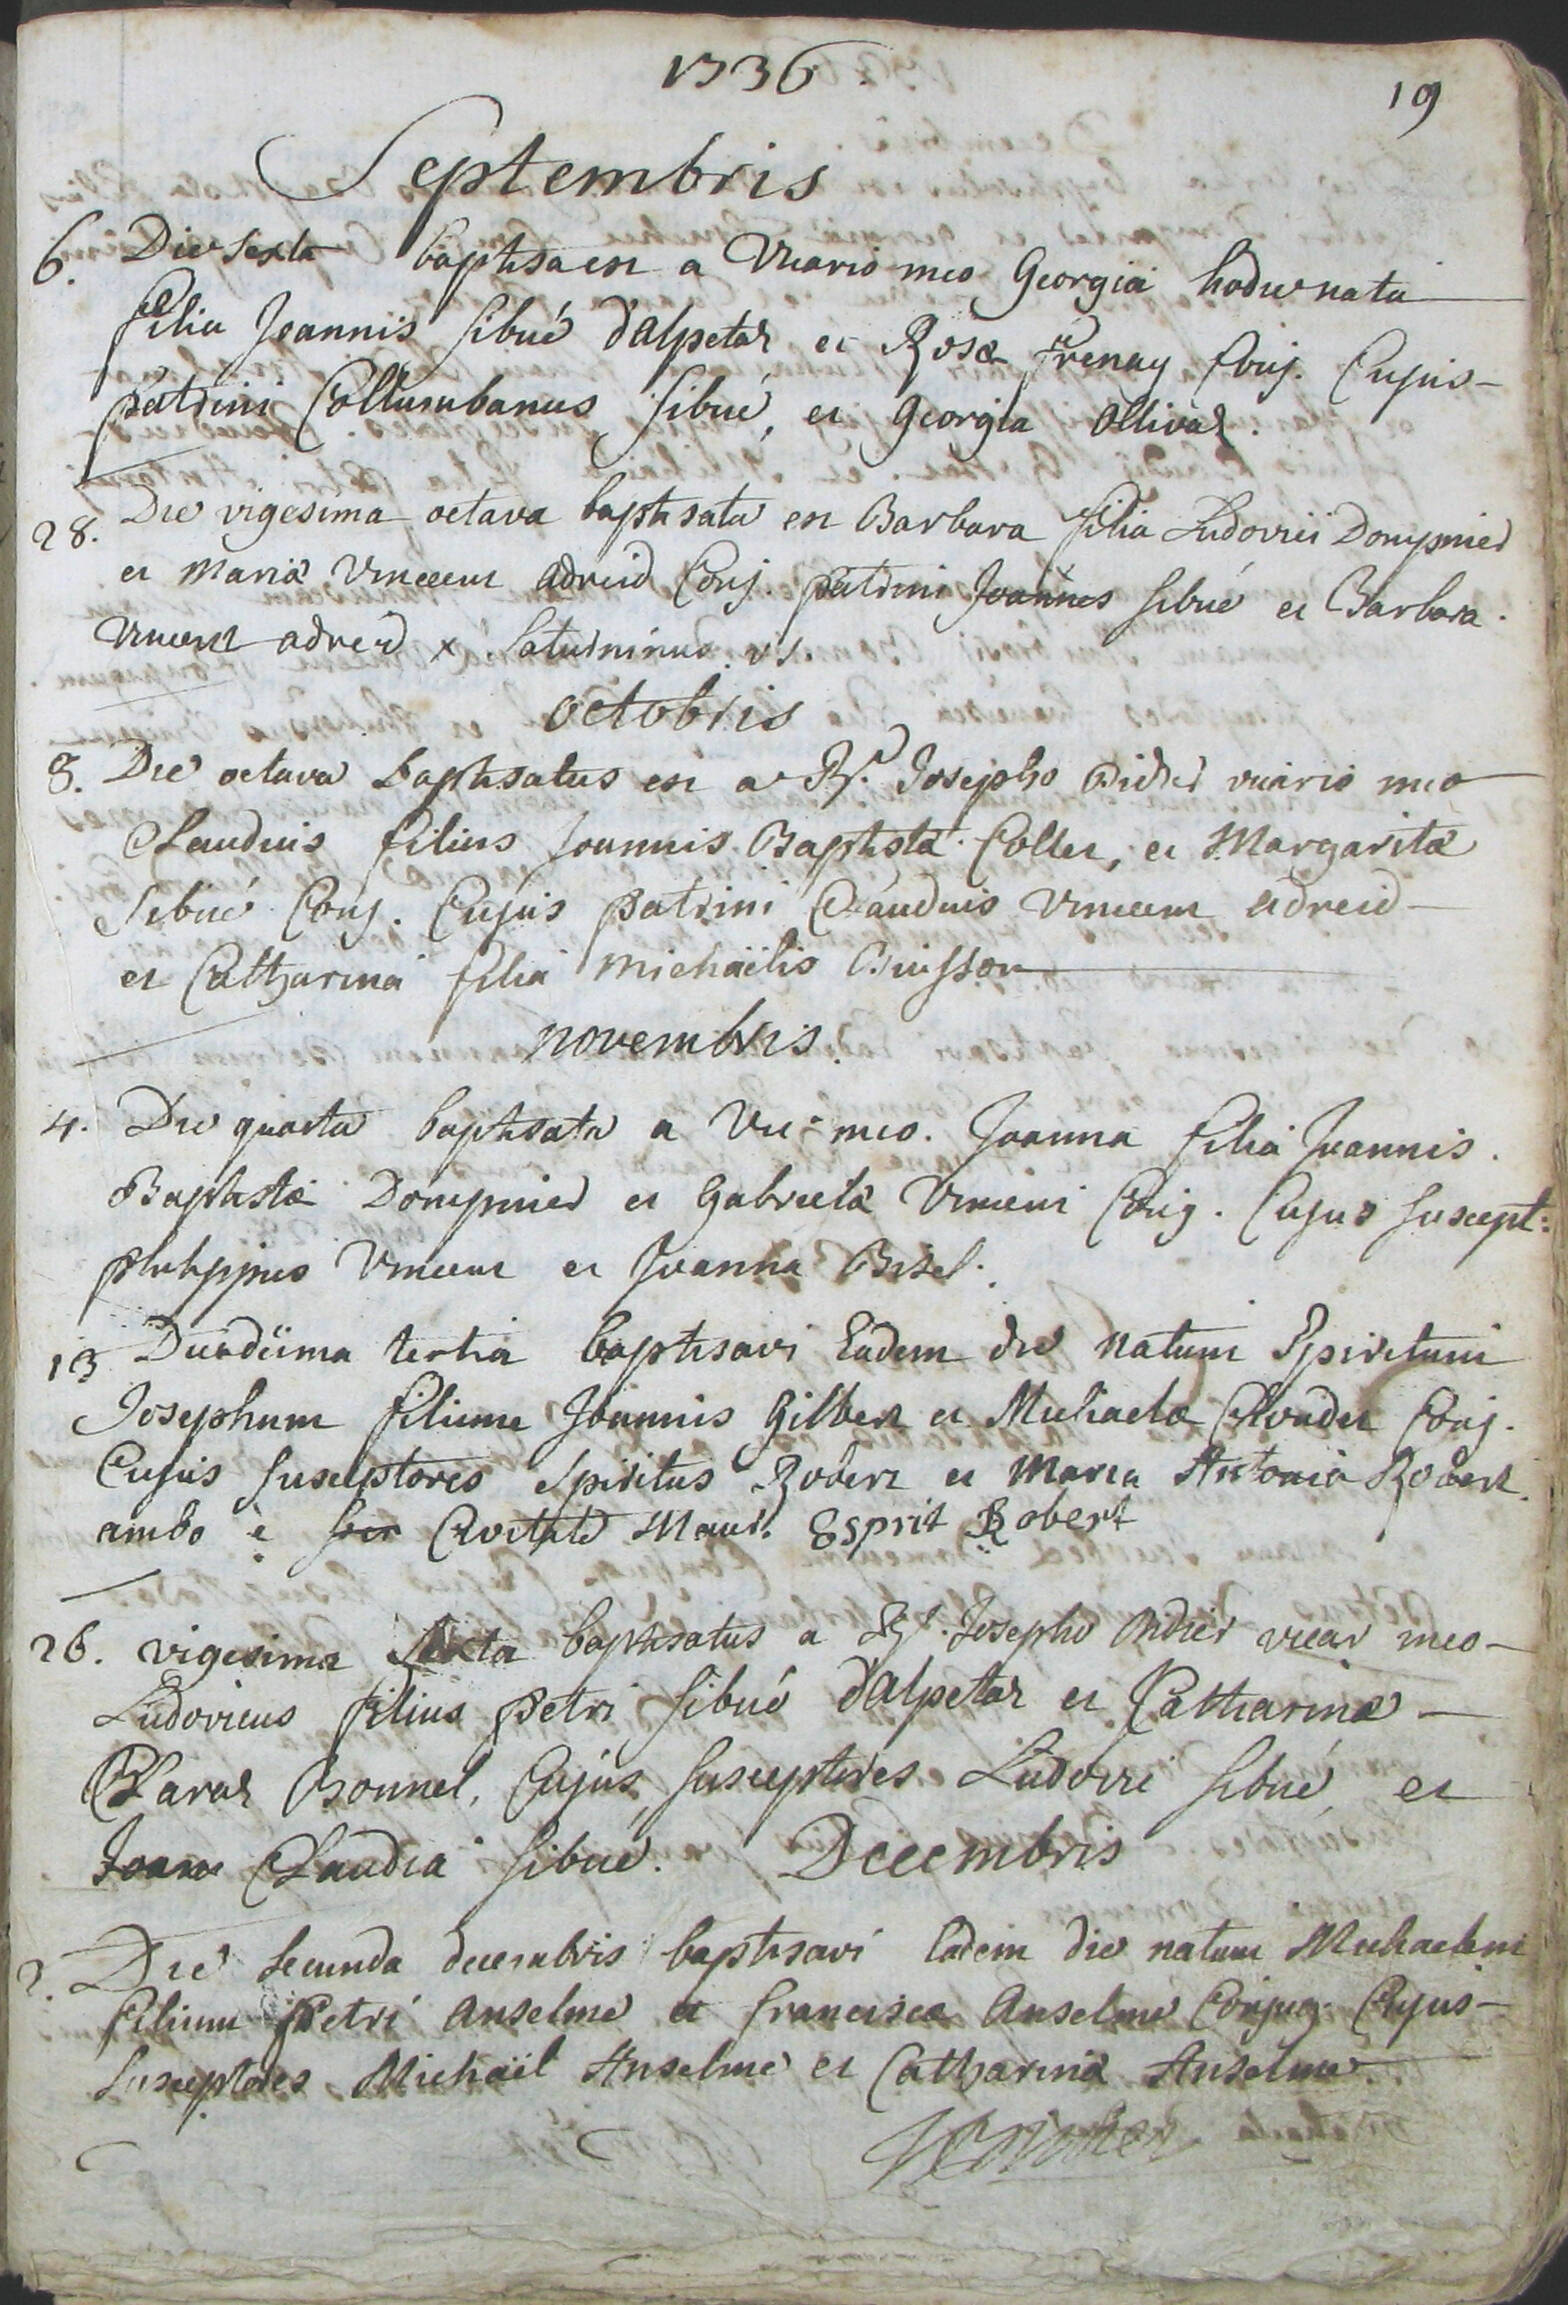 1736
19
Septembris
6. Die sexta baptisa est a Vicario meo Georgia hodie nata
filia Joannis Sibué d'alpetaz et Rosæ frenay Conj. Cujus
patrini Collumbanus Sibué, et Georgia Ollivaz.
28. Die vigesima octava baptisata est Barbara filia Ludovici Dompnier
et Mariæ Vincent adreid Conj. patrini Joannes Sibué et Barbara
Vincent adreid x Saturninus
octobris
8. Die octava baptisatus est a Rd. Josepho Didier vicario meo
Claudius filius Joannis Baptistæ Collet, et Margaritæ
Sibué Conj. Cujus patrini Claudius Vincent adreid
et Catharina filia Michaëlis Buisson
novembris.
4. Die quarta baptisata a Vic meo. Joanna filia Joannis
Baptistæ Dompnier et Gabrielæ Vincent Conj. Cujus suscept:
philippus Vincent et Joanna Bisel.
13 Die decima tertia baptisavi Eadem die natum Spiritum
Josephum filium Joannis Gilbert et Michaelæ Conj.
Cujus susceptores Spiritus Robert et Maria Antonia Robert
ambo è Civitate Maur. Esprit Robert
26. vigesima sexta baptisatus a Rd. Josepho Didier vicar meo
Ludovicus filius petri Sibué d'alpetaz et Catharinæ
Claraz Bonnel, Cujus susceptores Ludovic Sibué, et
Joana Claudia Sibué. Decembris
2. Die secunda decembris baptisavi Eadem die natum Michaelem
filium Petri Anselme et francisca Anselme Conjug. Cujus
susceptores Michaël Anselme et Catharina Anselme.